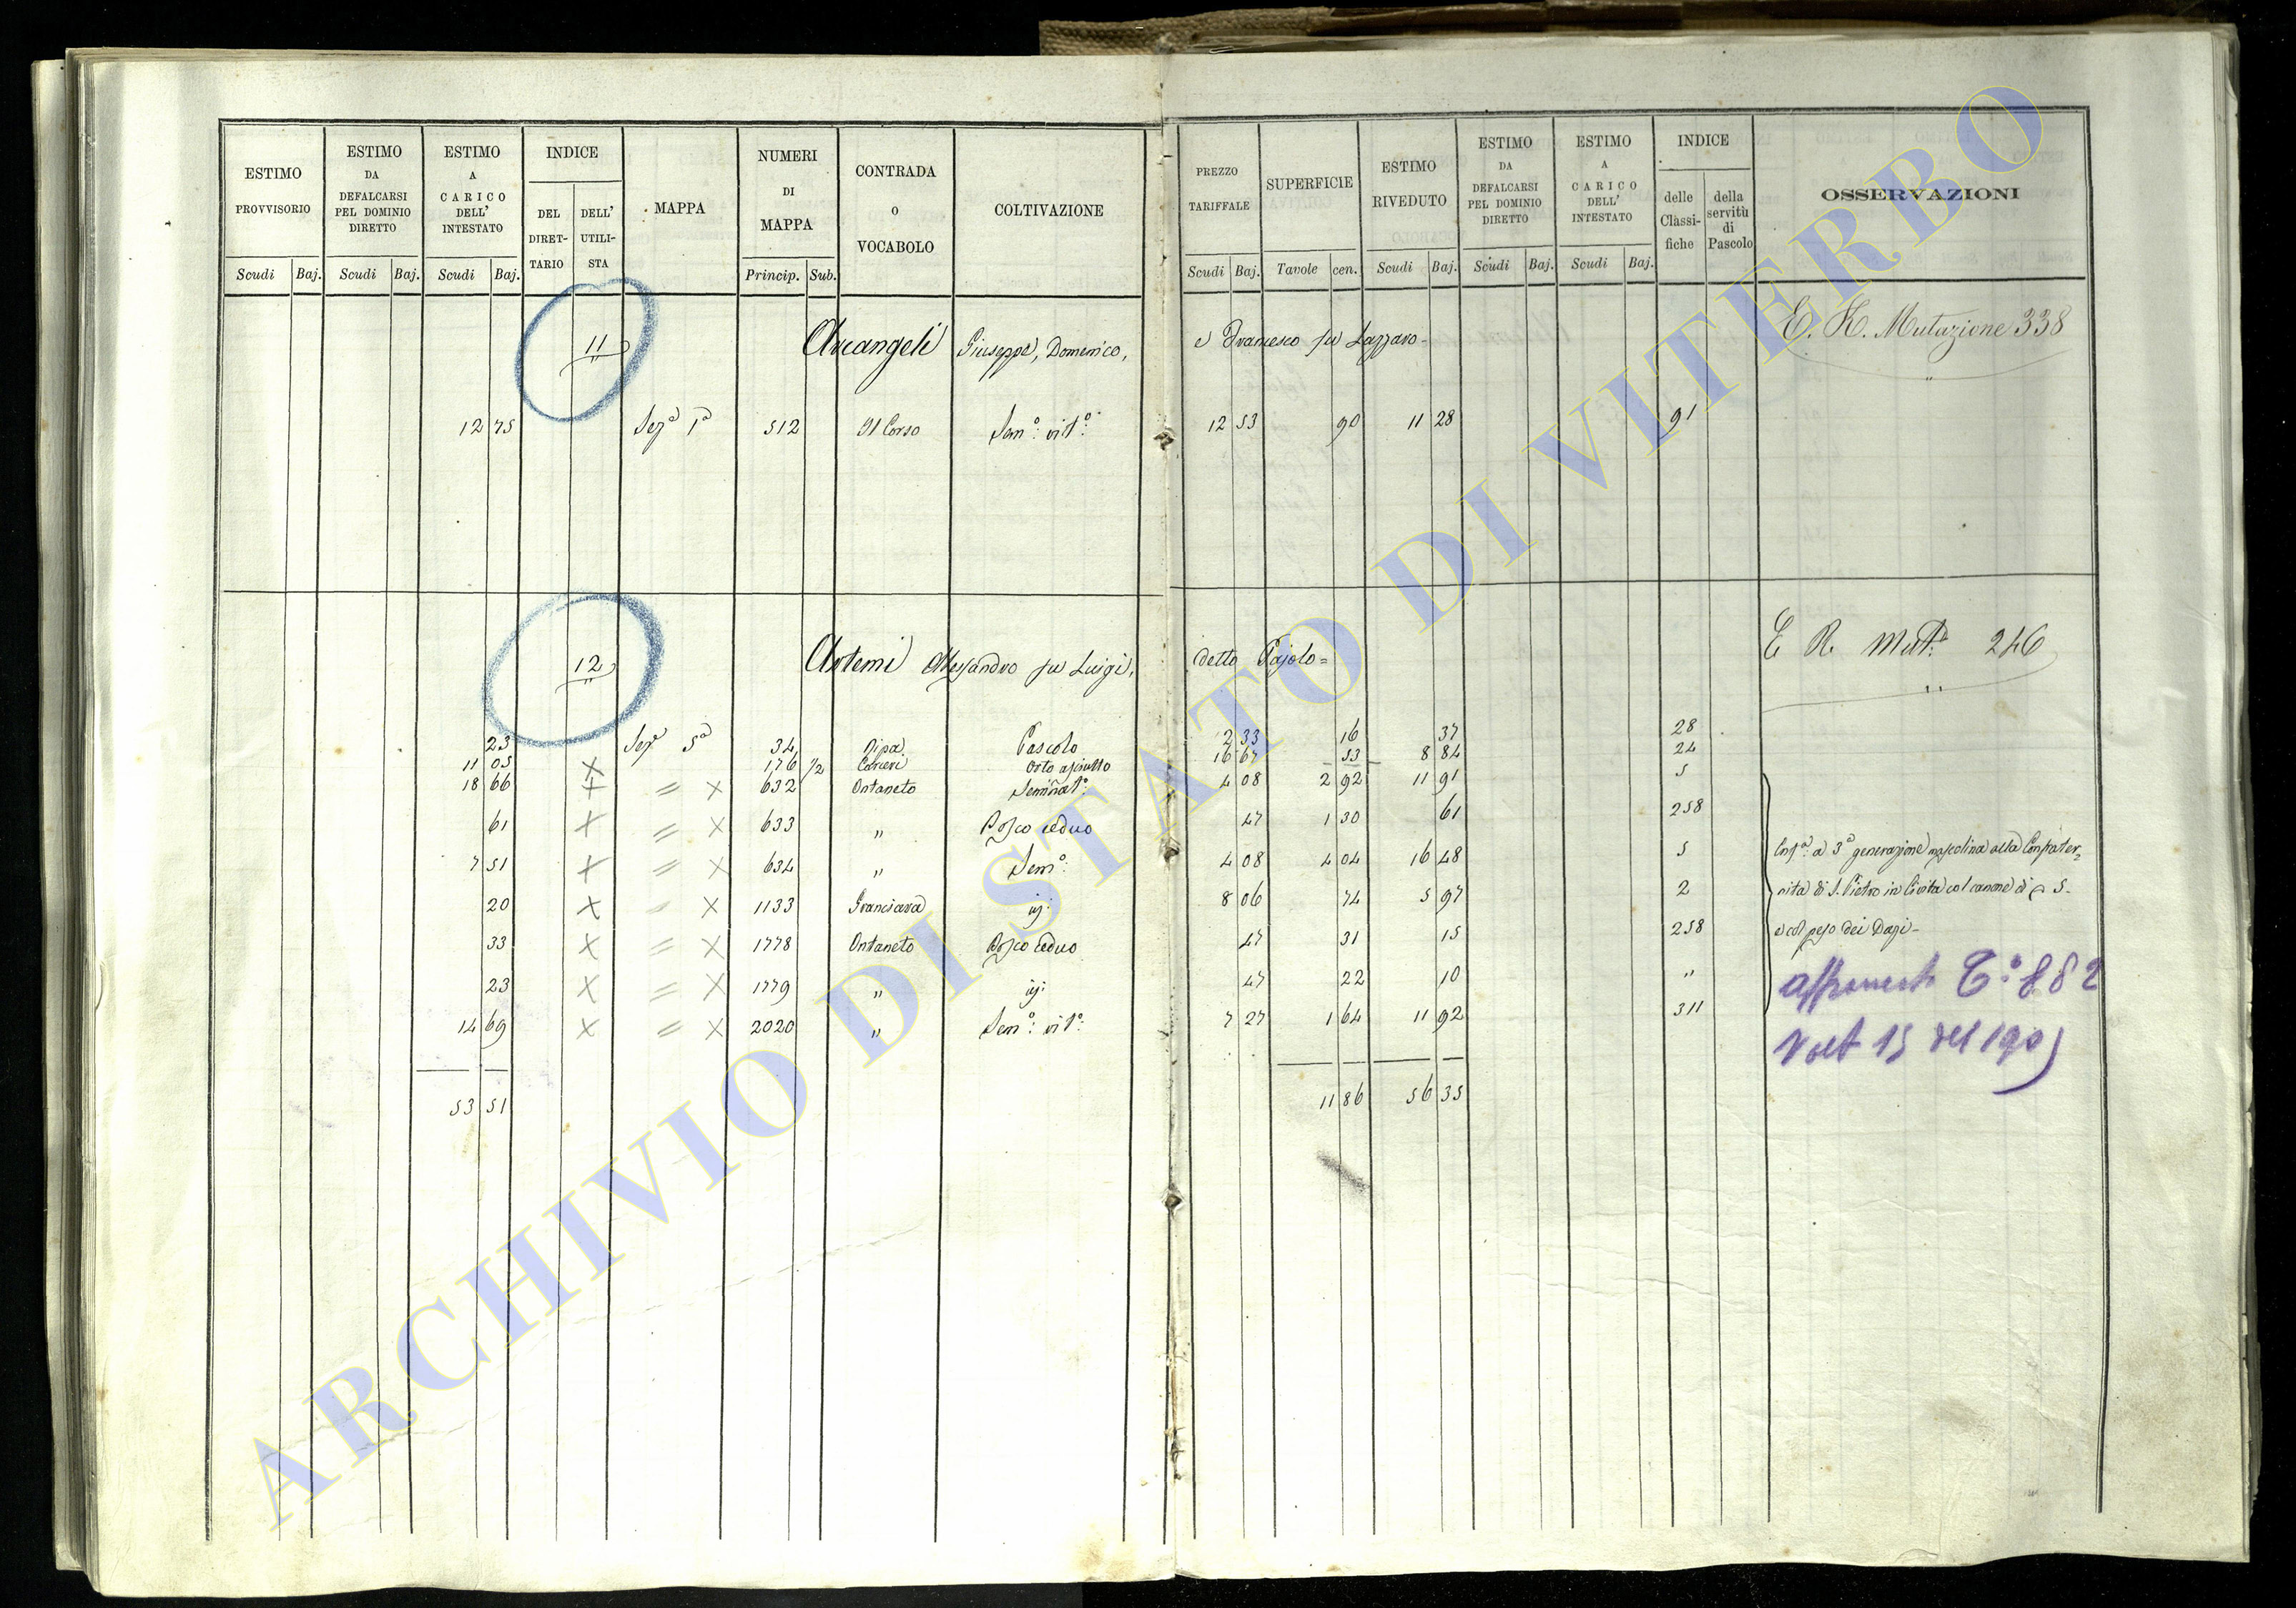 ESTIMO PROVVISORIO
ESTIMO DA DEFALCARSI PEL DOMINIO DIRETTO
ESTIMO A CARICO DELL' INTESTATO
INDICE
DEL DIRET- TARIO
DELL' UTILI- STA
MAPPA
NUMERI DI MAPPA
CONTRADA o VOCABOLO
COLTIVAZIONE
PREZZO TARIFFALE
SUPERFICIE
ESTIMO RIVEDUTO
ESTIMO DA DEFALCARSI PEL DOMINIO DIRETTO
ESTIMO A CARICO DELL' INTESTATO
INDICE
delle Classi- fiche
della servitù di Pascolo
OSSERVAZIONI
Scudi Baj. Scudi Baj. Scudi Baj. Princip. Sub. Scudi Baj. Tavole cen. Scudi Baj. Scudi Baj. Scudi Baj.
11 Arcangeli Giuseppe, Domenico, e Francesco fu Lazzaro E. R. Mutazione 338
12 75 Sezª 1ª 512 Il Corso Semº: vitº: 12 53 90 11 28 91
12 Artemi Alessandro fu Luigi, detto Pajolo= E R. Mutª: 246
23 Sezª 5ª 34 Ripa Pascolo 2 33 16 37 28
11 05 X 176 1/2 Orto asciutto 16 67 53 8 84 24
18 66 X = X 632 Ontaneto Seminatº: 4 08 2 92 11 91 5
61 X = X 633 " Bosco ceduo 47 1 30 61 258
7 51 X = X 634 " Semº: 4 04 08 4 04 16 48 5 Enfª: a 3ª generazione mascolina alla Confater=
20 X = X 1133 8 06 74 5 97 2 nita di S. Pietro in Civita col canone di 5.
33 X = X 1778 Ontaneto Bosco ceduo 47 31 15 258 e col peso dei Dazi-
23 X = X 1779 " 47 22 10 "
14 69 X = X 2020 " Semº: vitº: 7 27 1 64 11 92 311
53 51 11 86 56 35
ARCHIVIO DI STATO DI VITERBO